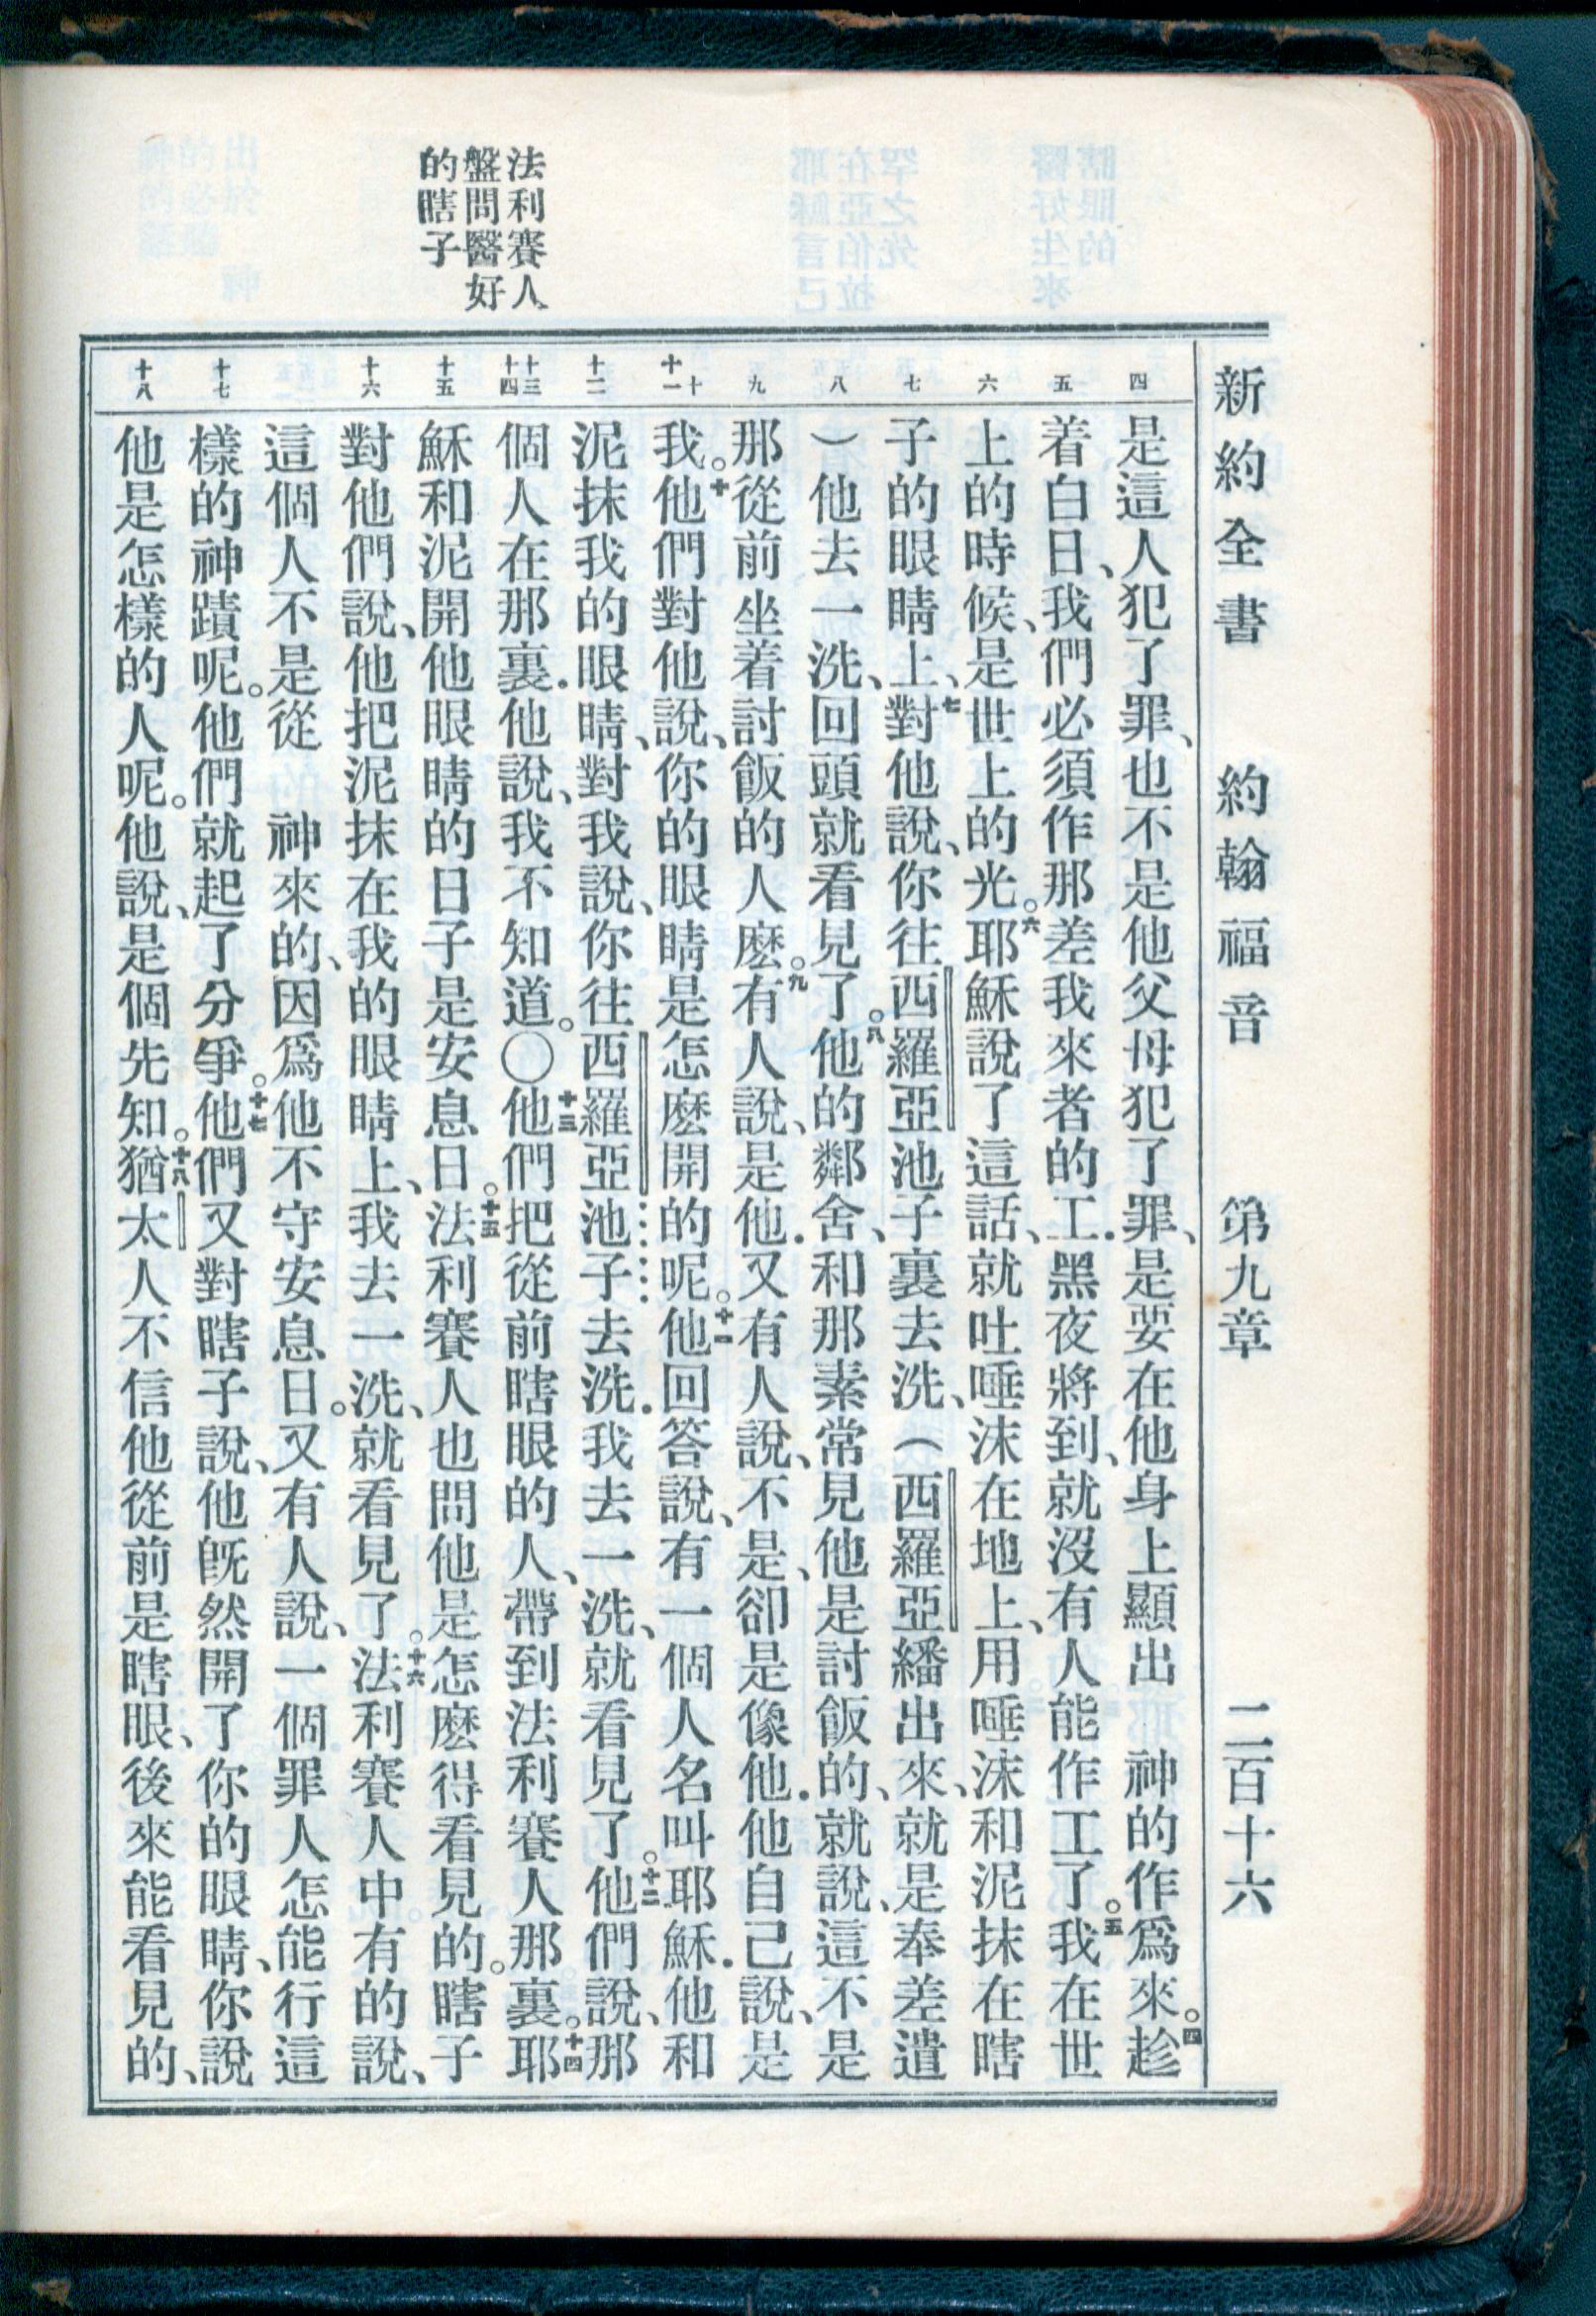 新約全書　約翰福音　第九章　二百十六
法利賽人
盤問醫好
的瞎子
四
五
六
七
八
九
十
十一
十二
十三
十四
十五
十六
十七
十八
是這人犯了罪、也不是他父母犯了罪、是要在他身上顯出　神的作爲來。四趁
着白日、我們必須作那差我來者的工．黑夜將到、就沒有人能作工了。五我在世
上的時候、是世上的光。六耶穌說了這話、就吐唾沫在地上、用唾沫和泥抹在瞎
子的眼睛上、七對他說、你往西羅亞池子裏去洗、（西羅亞繙出來、就是奉差遣
）他去一洗、回頭就看見了。八他的鄰舍、和那素常見他是討飯的、就說、這不是
那從前坐着討飯的人麽。九有人說、是他．又有人說、不是、卻是像他．他自己說、是
我。十他們對他說、你的眼睛是怎麽開的呢。十一他回答說、有一個人名叫耶穌．他和
泥抹我的眼睛、對我說、你往西羅亞池子去洗．我去一洗、就看見了。十二他們說、那
個人在那裏．他說、我不知道。〇十三他們把從前瞎眼的人、帶到法利賽人那裏。十四耶
穌和泥開他眼睛的日子是安息日。十五法利賽人也問他是怎麽得看見的。瞎子
對他們說、他把泥抹在我的眼睛上、我去一洗、就看見了。十六法利賽人中有的說、
這個人不是從　神來的、因爲他不守安息日。又有人說、一個罪人怎能行這
樣的神蹟呢。他們就起了分爭。十七他們又對瞎子說、他旣然開了你的眼睛、你說
他是怎樣的人呢。他說、是個先知。十八猶太人不信他從前是瞎眼、後來能看見的、